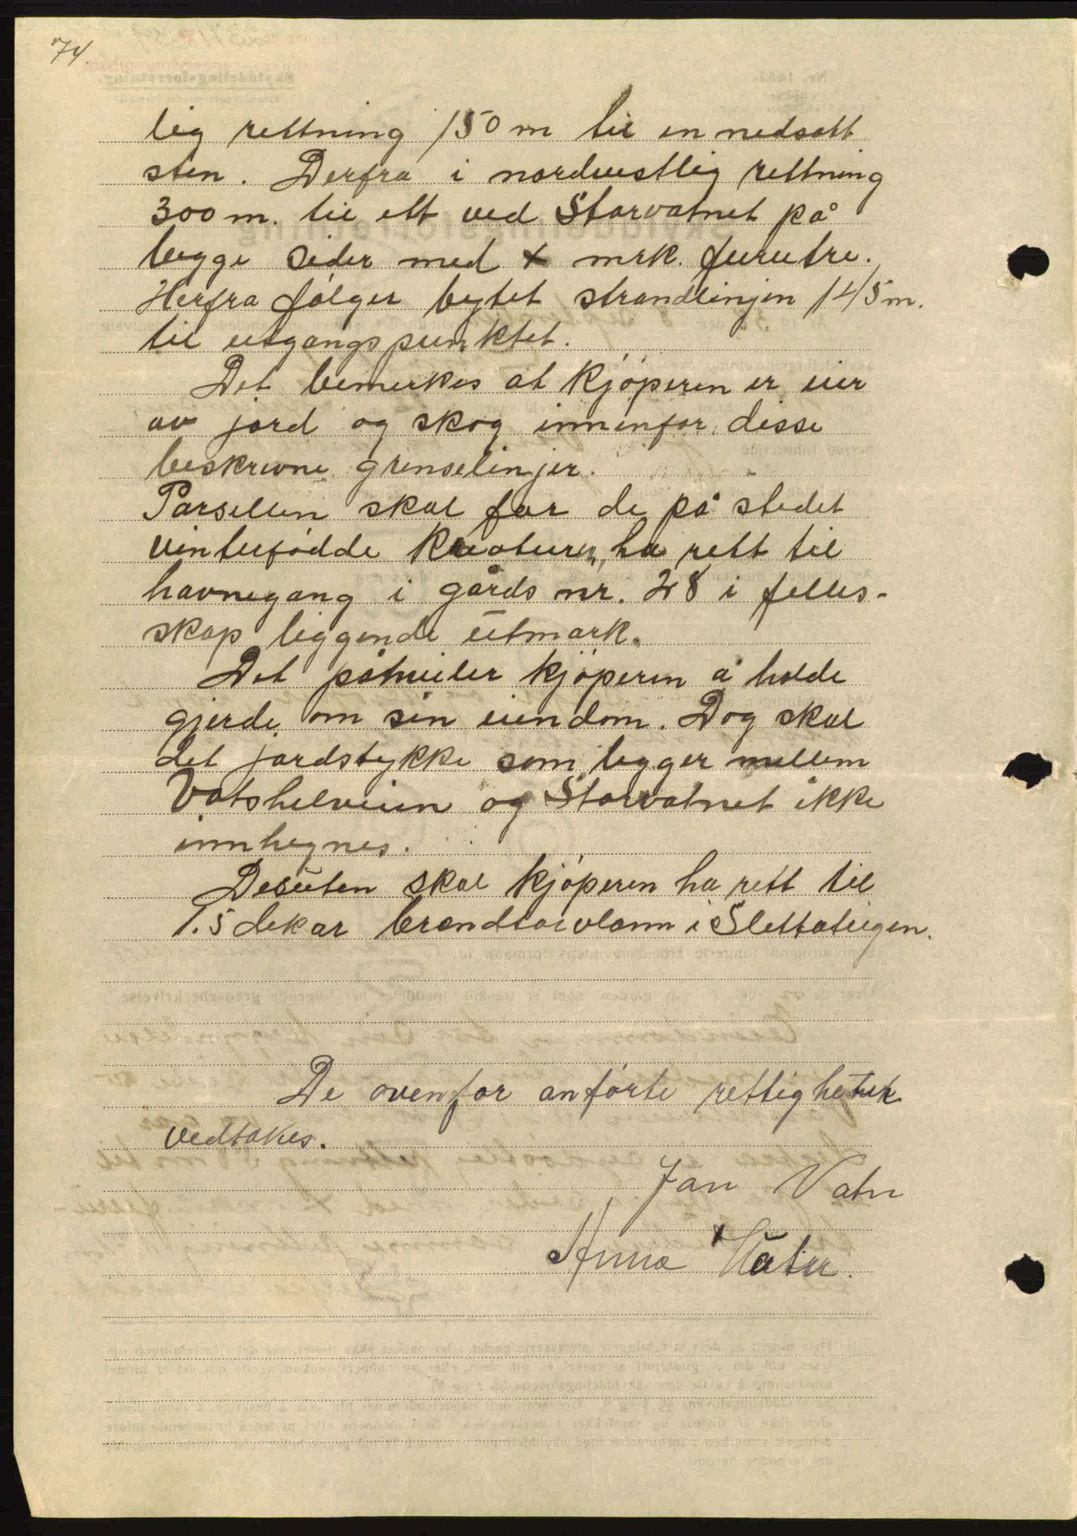 74.
lig rettning 150 m til en nedsatt
sten. Derfra i nordvestlig rettning
300 m. til ett ved Storvatnet på
begge sider med x mrk. furutre.
Herfra følger bytet strandlinjen 145 m.
til utgangspunktet.
Det bemerkes at kjøperen er eier
av jord og skog innenfor disse
beskrevne grenselinjer.
Parsellen skal for de på stedet
vinterfødde kreaturer, ha rett til
havnegang i gårds nr. 28 i felles-
skap liggende utmark.
Det påhviler kjøperen å holde
gjerde om sin eiendom. Dog skal
det jordstykke som ligger mellem
Vatshelveien og Storvatnet ikke
innhegnes.
Desuten skal kjøperen ha rett til
1.5 dekar brendtorvlann i Slettateigen.
De ovenfor anførte rettigheter
vedtakes.
Jan Vatn
Anna Vatn.